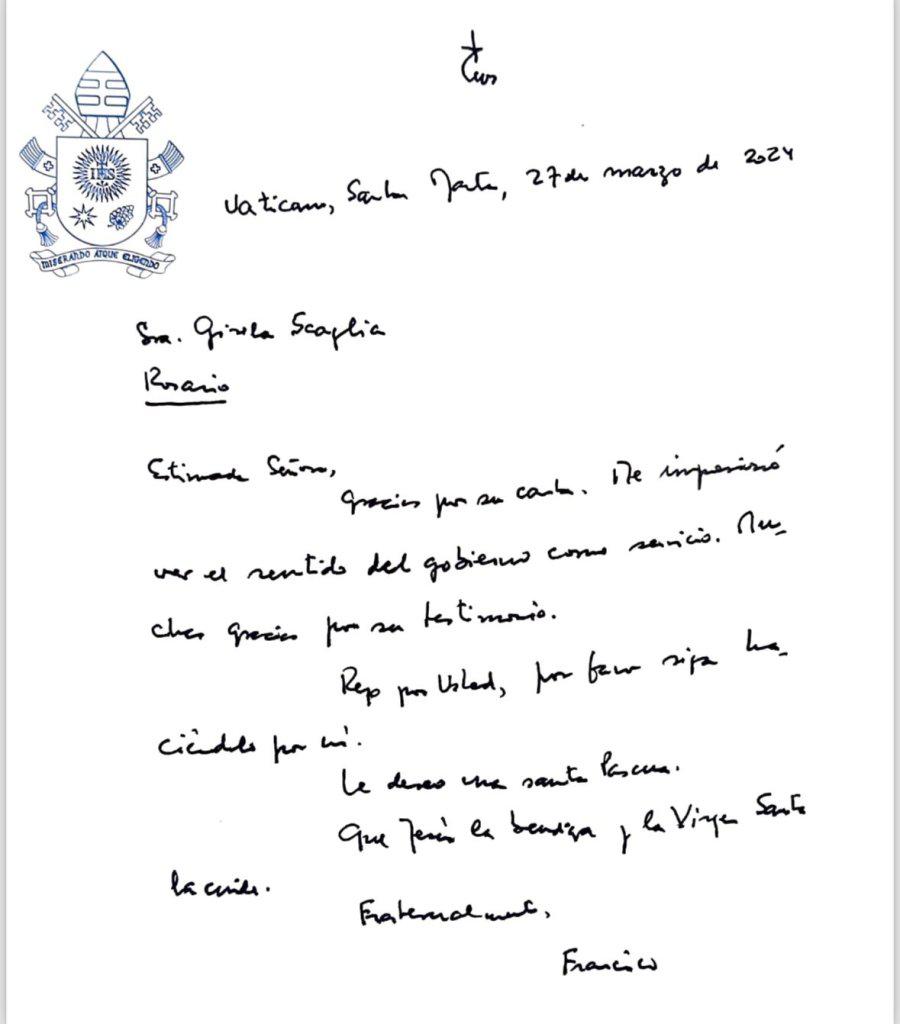 IHS
MISERANDO ATQUE ELIGENDO
Vaticano, Santa Marta, 27 de marzo de 2024
Sra. Gisela Scaglia
Rosario
Estimada Señora,
Gracias por su carta. Me impresionó
ver el sentido del gobierno como servicio. Mu-
chas gracias por su testimonio.
Rezo por Usted, por favor siga ha-
ciéndolo por mí.
Le deseo una santa Pascua.
Que Jesús la bendiga y la Virgen Santa
la cuide.
Fraternalmente,
Francisco